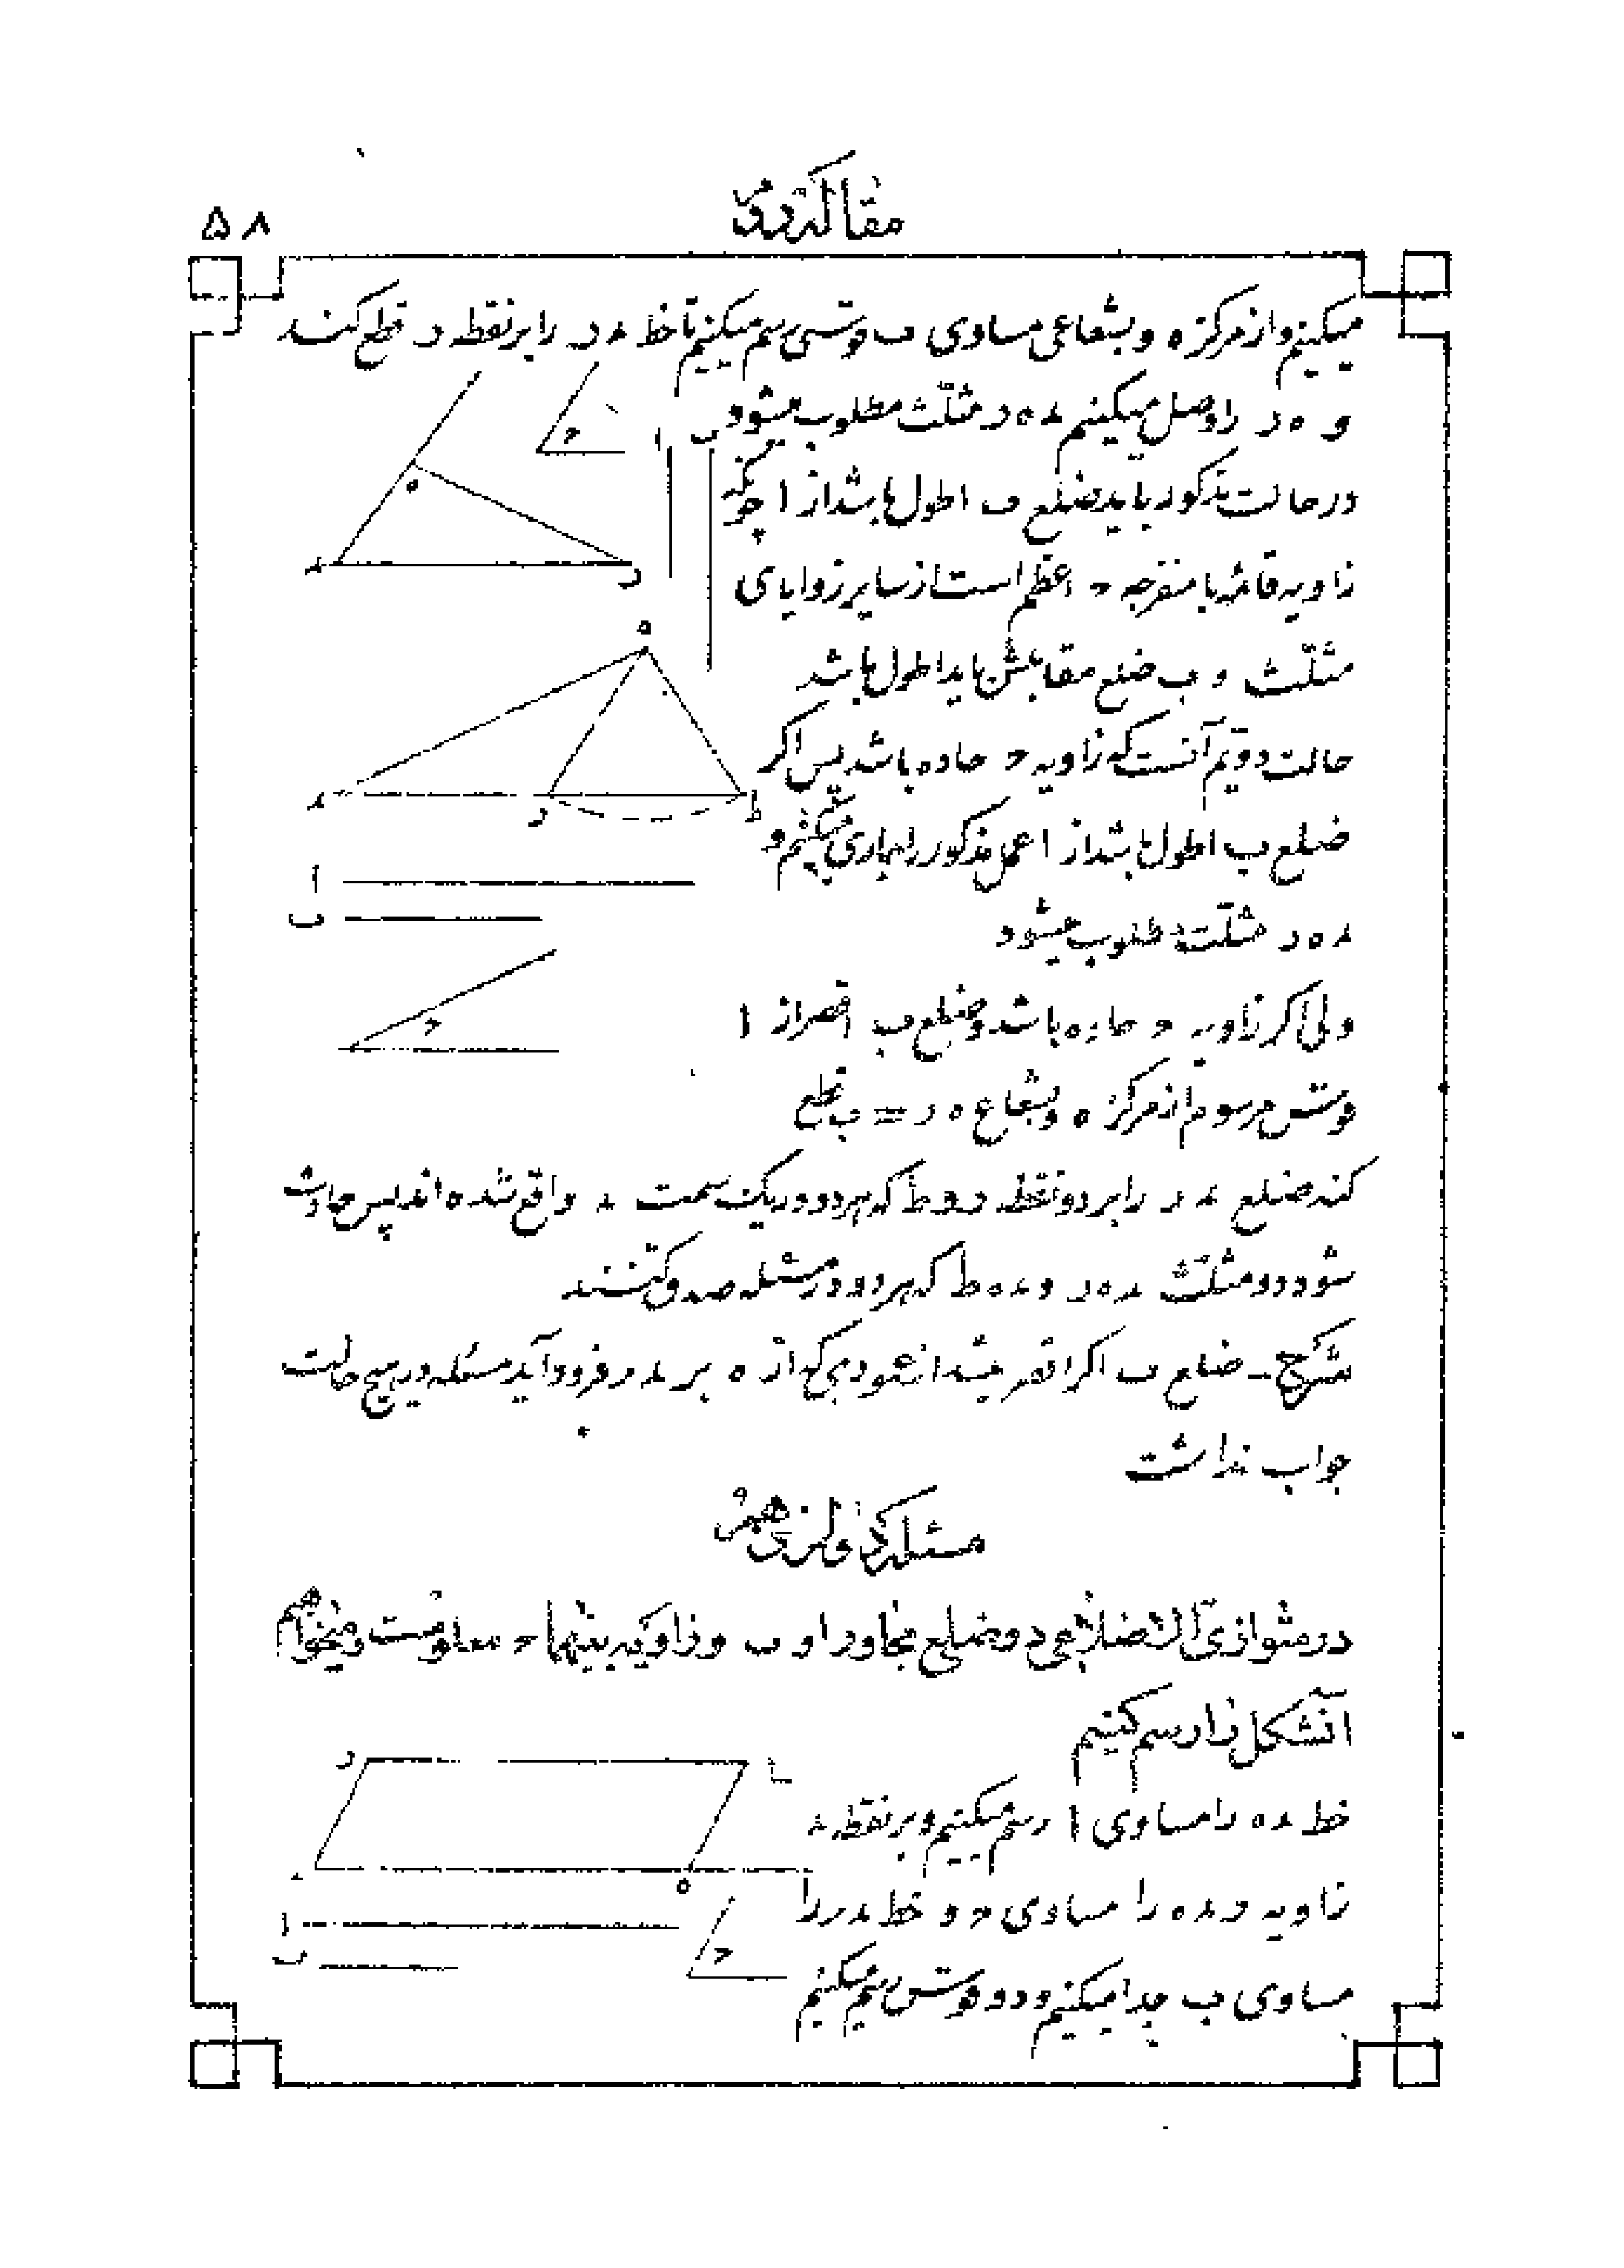 مقاله دویم
۵۸
میکنیم و از مرکز ه و بشعاعی مساوی ب قوسی رسم میکنیم تا خط ء د را بر نقطه د قطع کند
و ه د را وصل میکنیم ء ه د مثلّث مطلوب میشود
در حالت مذکور باید ضلع ب اطول باشد از ا چونکه
زاویه قائمه یا منفرجه ح اعظم است از سایر زوایای
مثلّث و ب ضلع مقابلش باید اطول باشد
حالت دویّم آنست که زاویه ح حاده باشد پس اگر
ضلع ب اطول باشد از ا عمل مذکور را جاری میکنیم و
ء ه د مثلّث مطلوب میشود
ولی اگر زاویه ح حاده باشد و ضلع ب اقصر از ا
قوس مرسوم از مرکز ه و بشعاع ه د = ب قطع
کند ضلع ء د را بر دو نقطه د و ط که هر دو در یک سمت ء واقع شده اند پس حادث
شود دو مثلّث ء ه د و ء ه ط که هر دو در مسئله صدق کنند
شرح - ضلع ب اگر اقصر میشد از عمودی که از ه بر ء د فرود آید مسئله در هیچ حالت
جواب نداشت
مسئله دوازدهم
در متوازی الاضلاعی دو ضلع مجاور ا و ب و زاویه بینهما ح معلومست و میخواهیم
آنشکل را رسم کنیم
خط ء ه را مساوی ا رسم میکنیم و بر نقطه ء
زاویه د ء ه را مساوی ح و خط ء د را
مساوی ب جدا میکنیم و دو قوس رسم میکنیم